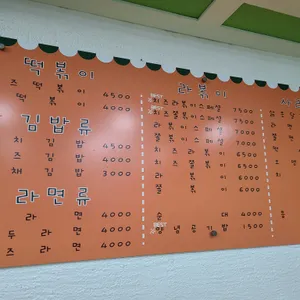 떡볶이
즈 떡 볶 이 4500
떡 볶 이 4000
김밥류
치 김 밥 4500
즈 김 밥 4000
채 김 밥 3000
라면류
라 면 4000
두 라 면 4000
즈 라 면 4000
라볶이
치즈라볶이스페셜 7500
치즈쫄볶이스페셜 7500
라볶이스페셜 7000
쫄볶이스페셜 7000
치즈라볶이 6500
치즈쫄볶이 6500
라 볶 이 6000
쫄 볶 이 6000
순 대 4000
공기밥 1500